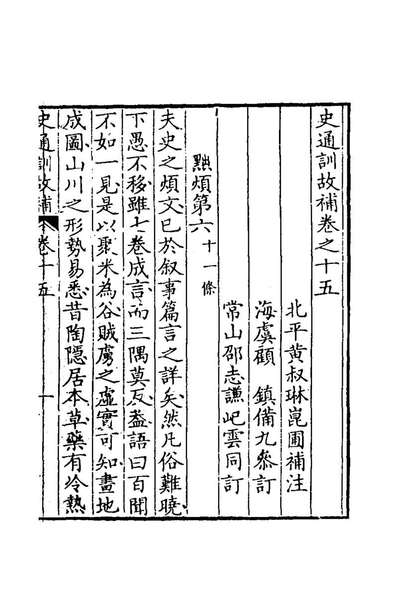 史通訓故補卷之十五
北平黃叔琳崑圃補注
海虞顧　鎮備九參訂
常山邵志謙屺雲同訂
點煩第六十一條
夫史之煩文已於叙事篇言之詳矣然凡俗難曉
下愚不移雖七卷成言而三隅莫反葢語曰百聞
不如一見是以聚米為谷賊虜之虛實可知畫地
成圖山川之形勢易悉昔陶隱居本草藥有冷熱
史通訓故補 卷十五 一